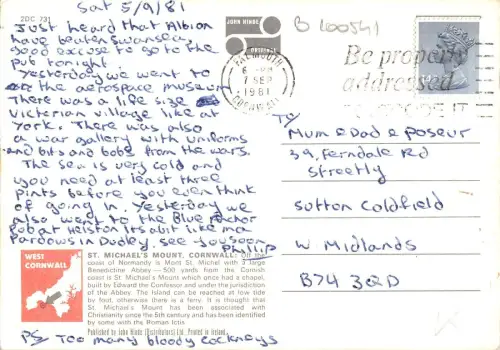 Sat 5/9/81
2DC 731
Just heard that Albion
have beaten Swansea,
good excuse to go to the
pub tonight.
Yesterday we went to
the aerospace museum
There was a life size
Victorian village like at
York. There was also
a war gallery with uniforms
and bits and bobs from the wars.
The sea is very cold and
you need at least three
pints before you even think
of going in. Yesterday we
also went to the Blue Anchor
Pub at Helston its abit like ma
Pardows in Dudley, see you soon
Phillip
WEST
CORNWALL
ST. MICHAEL'S MOUNT, CORNWALL: Off the
coast of Normandy is Mont St. Michel with a large
Benedictine Abbey — 500 yards from the Cornish
coast is St. Michael's Mount which once had a chapel,
built by Edward the Confessor and under the jurisdiction
of the Abbey. The Island can be reached at low tide
by foot, otherwise there is a ferry. It is thought that
St. Michael's Mount has been associated with
Christianity since the 5th century and has been identified
by some with the Roman Ictis.
Published by John Hinde (Distributors) Ltd. Printed in Ireland
PS Too many bloody cockneys
JOHN HINDE
ORIGINAL
B L00541
FALMOUTH
7 SEP
1981
CORNWALL
Be properly
addressed
To
Mum & Dad & Poseur
39, Ferndale Rd
Streetly
Sutton Coldfield
W. Midlands
B74 3QD